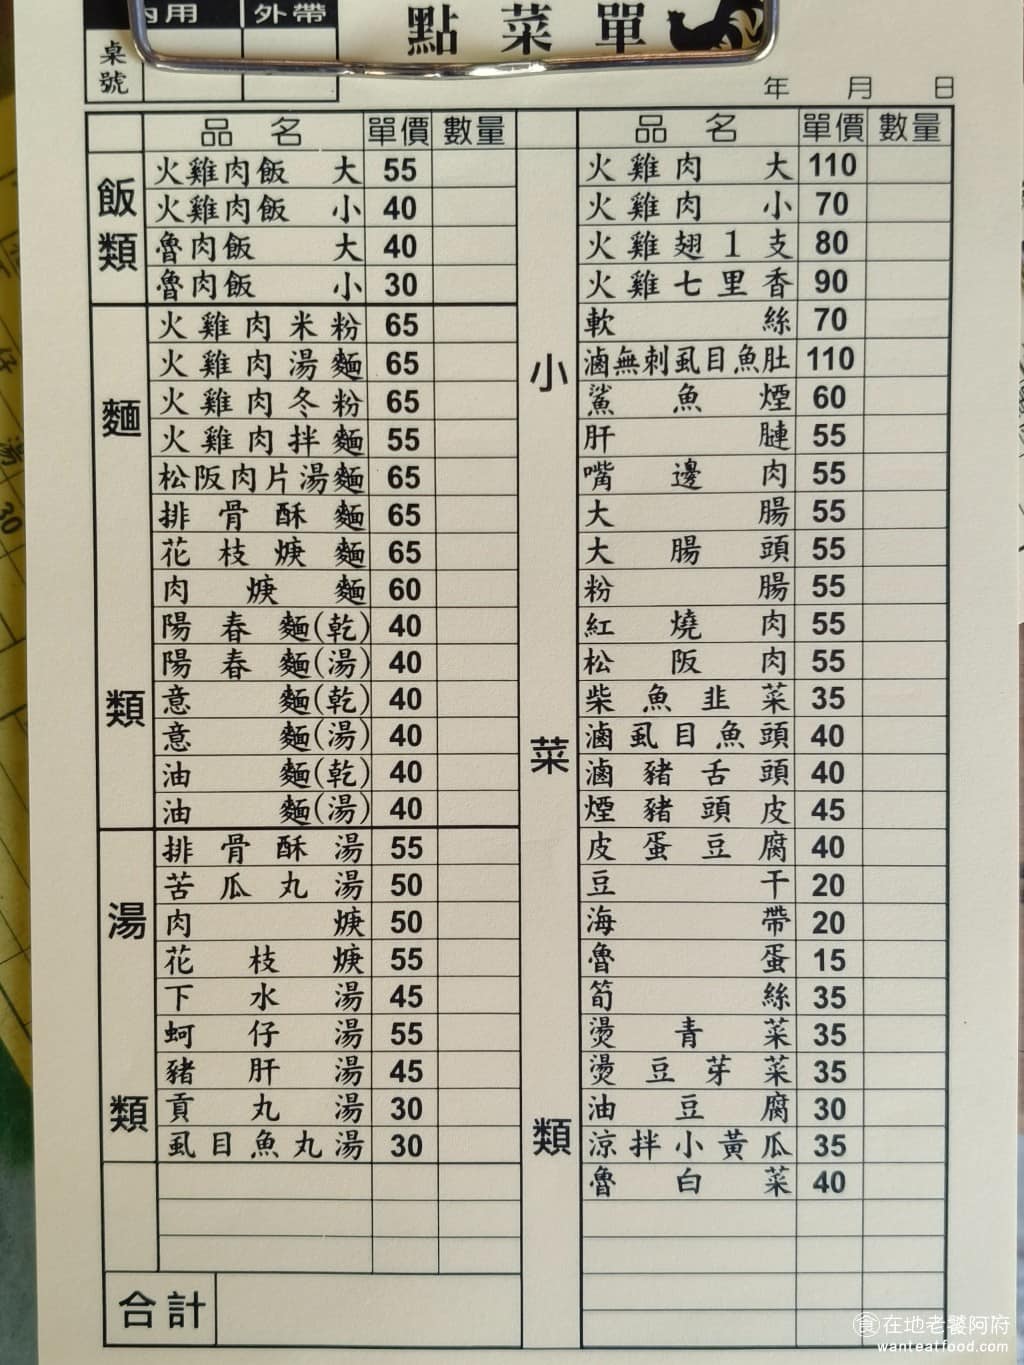 內用 外帶
點菜單
桌號
年 月 日
品名 單價 數量
飯類
火雞肉飯 大 55
火雞肉飯 小 40
魯肉飯 大 40
魯肉飯 小 30
麵類
火雞肉米粉 65
火雞肉湯麵 65
火雞肉冬粉 65
火雞肉拌麵 55
松阪肉片湯麵 65
排骨酥麵 65
花枝焿麵 65
肉焿麵 60
陽春麵(乾) 40
陽春麵(湯) 40
意麵(乾) 40
意麵(湯) 40
油麵(乾) 40
油麵(湯) 40
湯類
排骨酥湯 55
苦瓜丸湯 50
肉焿 50
花枝焿 55
下水湯 45
蚵仔湯 55
豬肝湯 45
貢丸湯 30
虱目魚丸湯 30
合計
品名 單價 數量
小菜類
火雞肉 大 110
火雞肉 小 70
火雞翅1支 80
火雞七里香 90
軟絲 70
滷無刺虱目魚肚 110
鯊魚煙 60
肝膁 55
嘴邊肉 55
大腸 55
大腸頭 55
粉腸 55
紅燒肉 55
松阪肉 55
柴魚韭菜 35
滷虱目魚頭 40
滷豬舌頭 40
煙豬頭皮 45
皮蛋豆腐 40
豆干 20
海帶 20
魯蛋 15
筍絲 35
燙青菜 35
燙豆芽菜 35
油豆腐 30
涼拌小黃瓜 35
魯白菜 40
食在地老饕阿府
wanteatfood.com